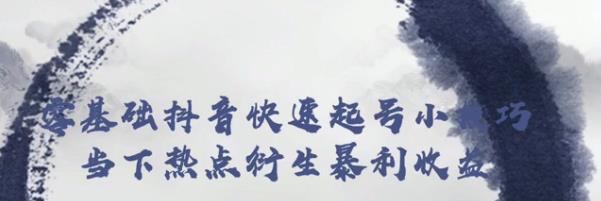 零基础抖音快速起号小技巧
当下热点衍生暴利收益